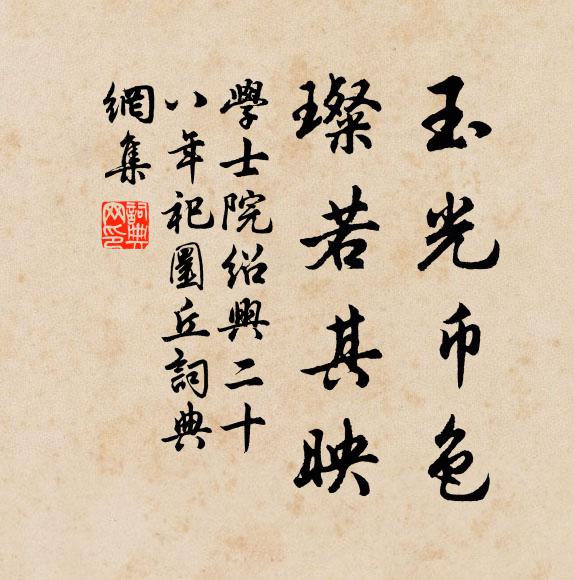 玉光币色
璨若其映
學士院紹興二十
八年祀圜丘詞典
網集
詞典網印